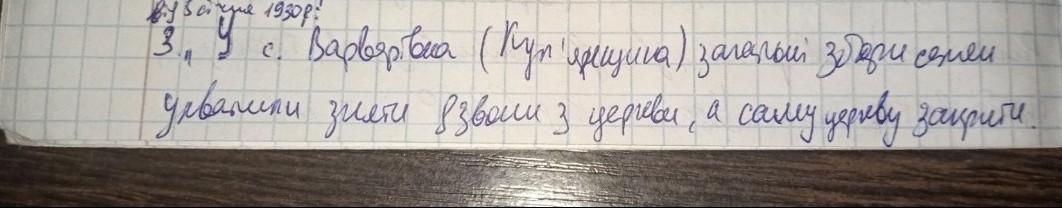 від 3 січня 1930р.
3. „У с. Варварівка (Куп'янщина) загальні збори селян
ухвалили зняти дзвони з церкви, а саму церкву закрити.